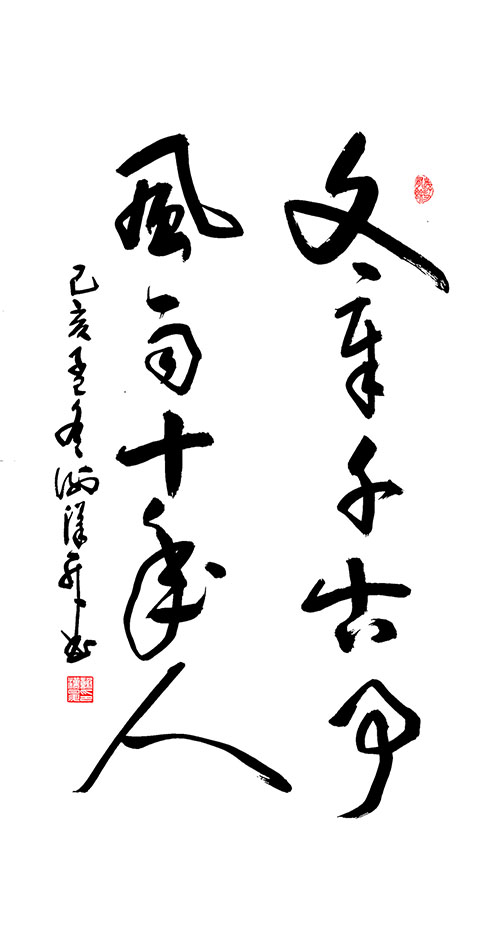 文章千古事
風雨十年人
己亥孟冬